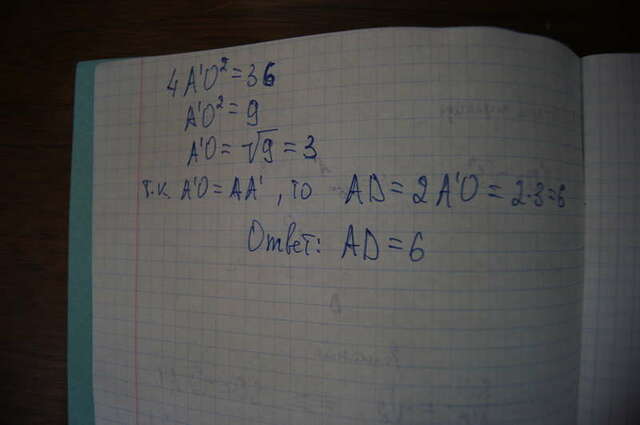 4A'O² = 36
A'O² = 9
A'O = √9 = 3
т.к. A'O = AA', то AD = 2A'O = 2·3=6
Ответ: AD = 6